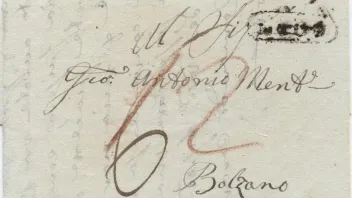 Al Sig
Gio. Antonio Ment
12
6
Bolzano